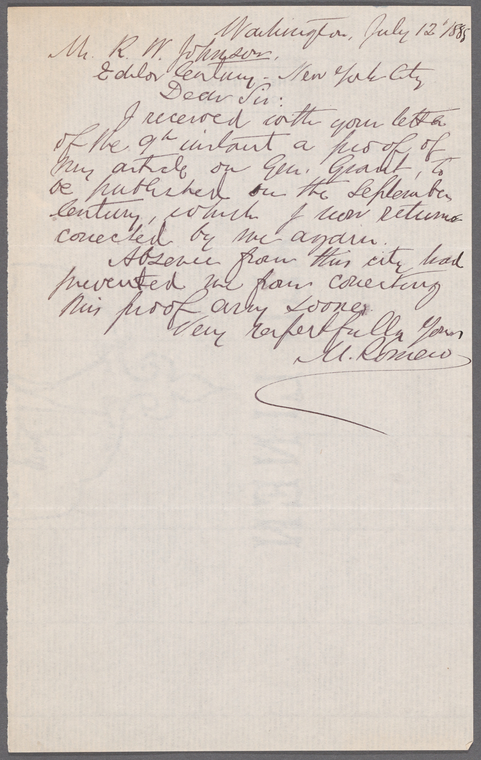 Washington, July 12/1885
Mr. R. W. Johnson,
Editor Century - New York City
Dear Sir:
I received with your letter
of the 9th instant a proof of
my article on Gen. Grant, to
be published in the September
Century, which I now return
corrected by me again.
Absence from this city had
prevented me from correcting
this proof any sooner
Very respectfully Yours
M. Romero